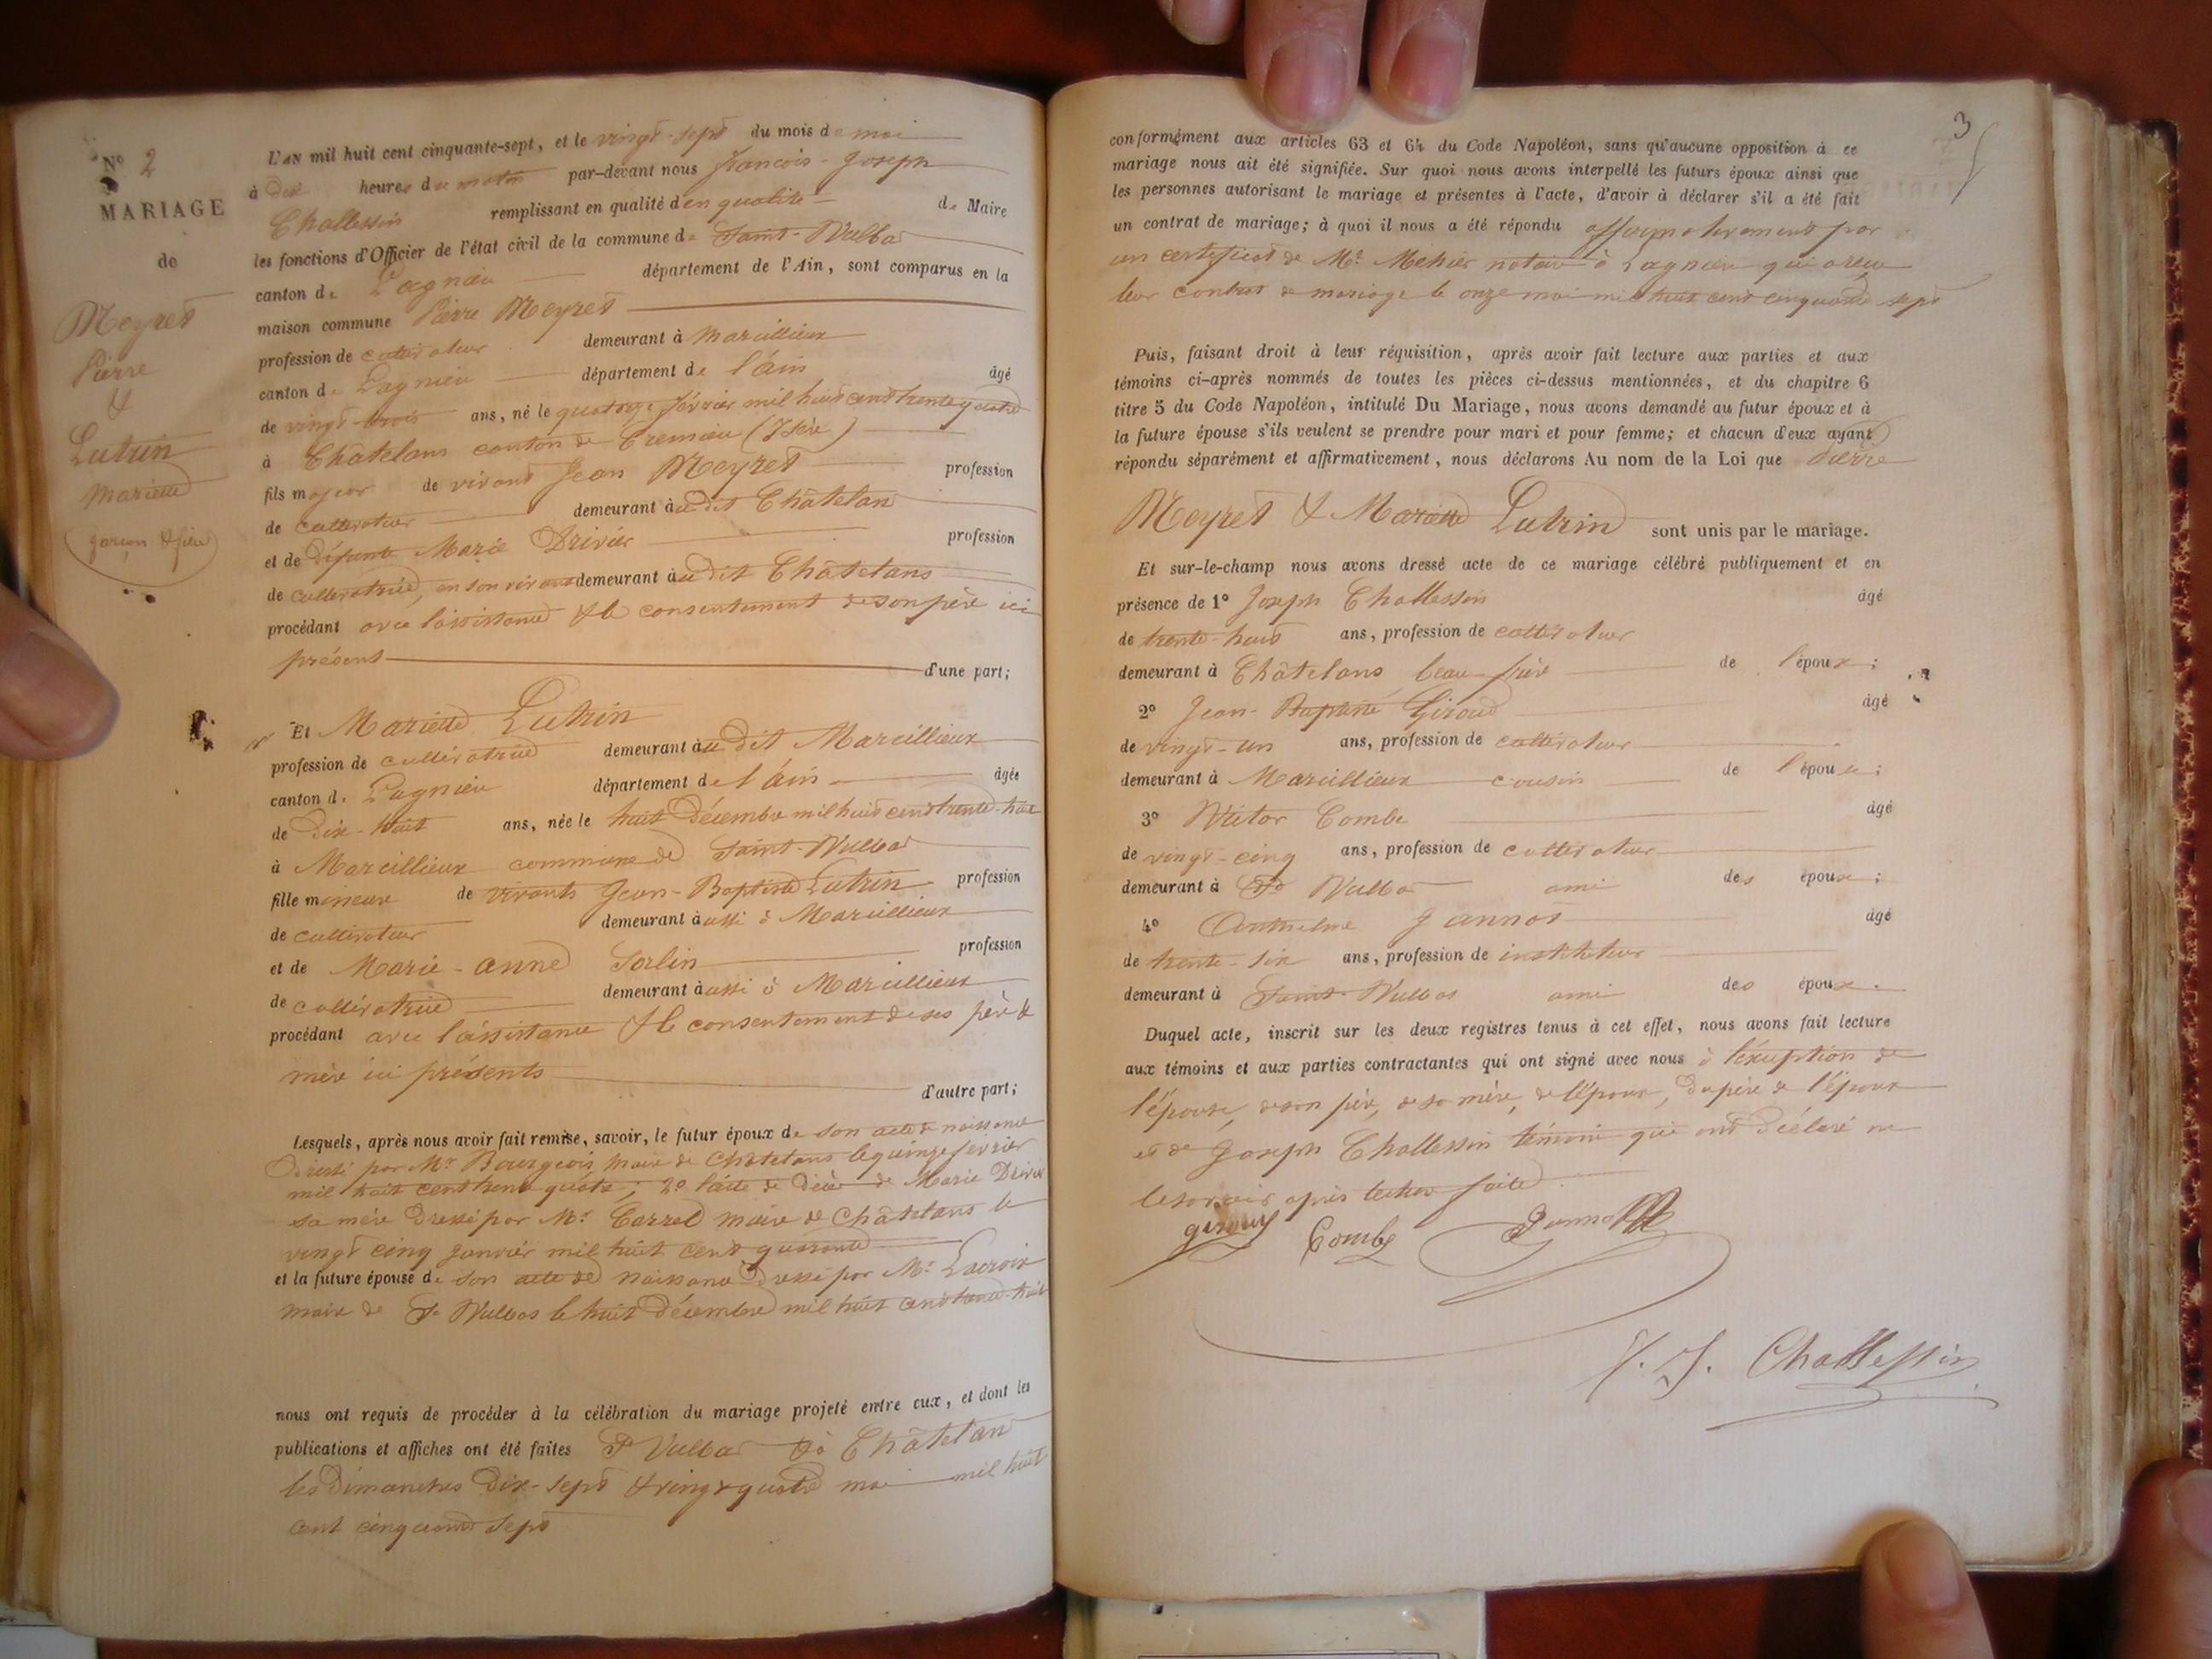 N° 2
MARIAGE
de
Meyret
Pierre
&
Lutrin
Mariette
(garçon & fille)
L'AN mil huit cent cinquante-sept, et le vingt-sept du mois de mai
à dix heures du matin par-devant nous François-Joseph
Challessin remplissant en qualité d en qualité de Maire
les fonctions d'Officier de l'état civil de la commune de Saint-Vulbas
canton de Lagnieu département de l'Ain, sont comparus en la
maison commune Pierre Meyret
profession de cultivateur demeurant à Marcillieux
canton de Lagnieu département de l'Ain âgé
de vingt-trois ans, né le quatorze février mil huit cent trente quatre
à Châtelans canton de Cremieu (Isère)
fils majeur de vivant Jean Meyret profession
de cultivateur demeurant à u dit Châtelans
et de défunte Marie Drivier profession
de cultivatrice, en son vivant demeurant à u dit Châtelans
procédant avec l'assistance & le consentement de son père ici
présent d'une part;
Et Mariette Lutrin
profession de cultivatrice demeurant à u dit Marcillieux
canton de Lagnieu département de l'Ain âgée
de dix-huit ans, née le huit Décembre mil huit cent trente-huit
à Marcillieux commune de Saint-Vulbas
fille mineure de vivants Jean-Baptiste Lutrin profession
de cultivateur demeurant aussi à Marcillieux
et de Marie-anne Sorlin profession
de cultivatrice demeurant aussi à Marcillieux
procédant avec l'assistance & le consentement de ses père &
mère ici présents d'autre part;
Lesquels, après nous avoir fait remise, savoir, le futur époux de son acte de naissance
Dressé par Mr Bourgeois maire de Châtelans le quinze février
mil huit cent trente quatre; 2° l'acte de décès de Marie Drivier
sa mère Dressé par Mr Carrel maire de Châtelans le
vingt cinq janvier mil huit cent quarante
et la future épouse de son acte de naissance Dressé par Mr Lacroix
maire de St Vulbas le huit Décembre mil huit cent trente-huit
nous ont requis de procéder à la célébration du mariage projeté entre eux, et dont les
publications et affiches ont été faites St Vulbas & à Châtelans
les Dimanches Dix-sept & vingt quatre mai mil huit
cent cinquante sept
3
conformément aux articles 63 et 64 du Code Napoléon, sans qu'aucune opposition à ce
mariage nous ait été signifiée. Sur quoi nous avons interpellé les futurs époux ainsi que
les personnes autorisant le mariage et présentes à l'acte, d'avoir à déclarer s'il a été fait
un contrat de mariage; à quoi il nous a été répondu affirmativement par
un certificat de Me Mehier notaire à Lagnieu qui a reçu
leur contrat de mariage le onze mai mil huit cent cinquante sept
Puis, faisant droit à leur réquisition, après avoir fait lecture aux parties et aux
témoins ci-après nommés de toutes les pièces ci-dessus mentionnées, et du chapitre 6
titre 5 du Code Napoléon, intitulé Du Mariage, nous avons demandé au futur époux et à
la future épouse s'ils veulent se prendre pour mari et pour femme; et chacun d'eux ayant
répondu séparément et affirmativement, nous déclarons Au nom de la Loi que Pierre
Meyret & Mariette Lutrin sont unis par le mariage.
Et sur-le-champ nous avons dressé acte de ce mariage célébré publiquement et en
présence de 1° Joseph Challessin âgé
de trente-huit ans, profession de cultivateur
demeurant à Châtelans beau-frère de l'époux;
2° Jean-Baptiste Giroud âgé
de vingt-un ans, profession de cultivateur
demeurant à Marcillieux cousin de l'épouse;
3° Victor Combe âgé
de vingt-cinq ans, profession de cultivateur
demeurant à St Vulbas ami des époux;
4° Anthelme Jannot âgé
de trente-six ans, profession de instituteur
demeurant à Saint-Vulbas ami des époux.
Duquel acte, inscrit sur les deux registres tenus à cet effet, nous avons fait lecture
aux témoins et aux parties contractantes qui ont signé avec nous à l'exception de
l'épouse, de son père, de sa mère, de l'époux, du père de l'époux
et de Joseph Challessin témoin qui ont déclaré ne
le savoir après lecture faite
Combe Jannot
f. J. Challessin